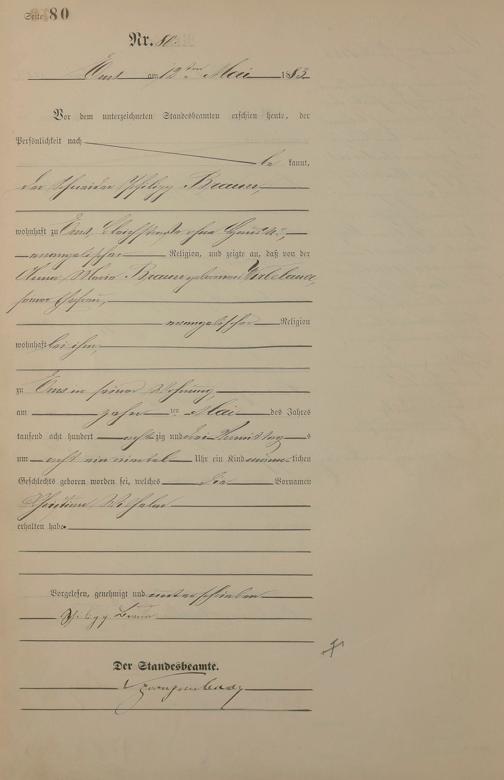 Seite 80
Nr. 80.
Ems am 12ten Mai 1883.
Vor dem unterzeichneten Standesbeamten erschien heute, der
Persönlichkeit nach
be kannt,
der Schneider Philipp Braun,
wohnhaft zu Ems, ohne
evangelischer Religion, und zeigte an, daß von der
Braun geborenen
seiner Ehefrau,
evangelischer Religion
wohnhaft bei ihm,
zu Ems in seiner Wohnung,
am zehn ten Mai des Jahres
tausend acht hundert acht zig und drei Vormittag s
um acht ein viertel Uhr ein Kind männ lichen
Geschlechts geboren worden sei, welches die Vornamen
Wilhelm
erhalten habe
Vorgelesen, genehmigt und unterschrieben
Philipp Braun
Der Standesbeamte.